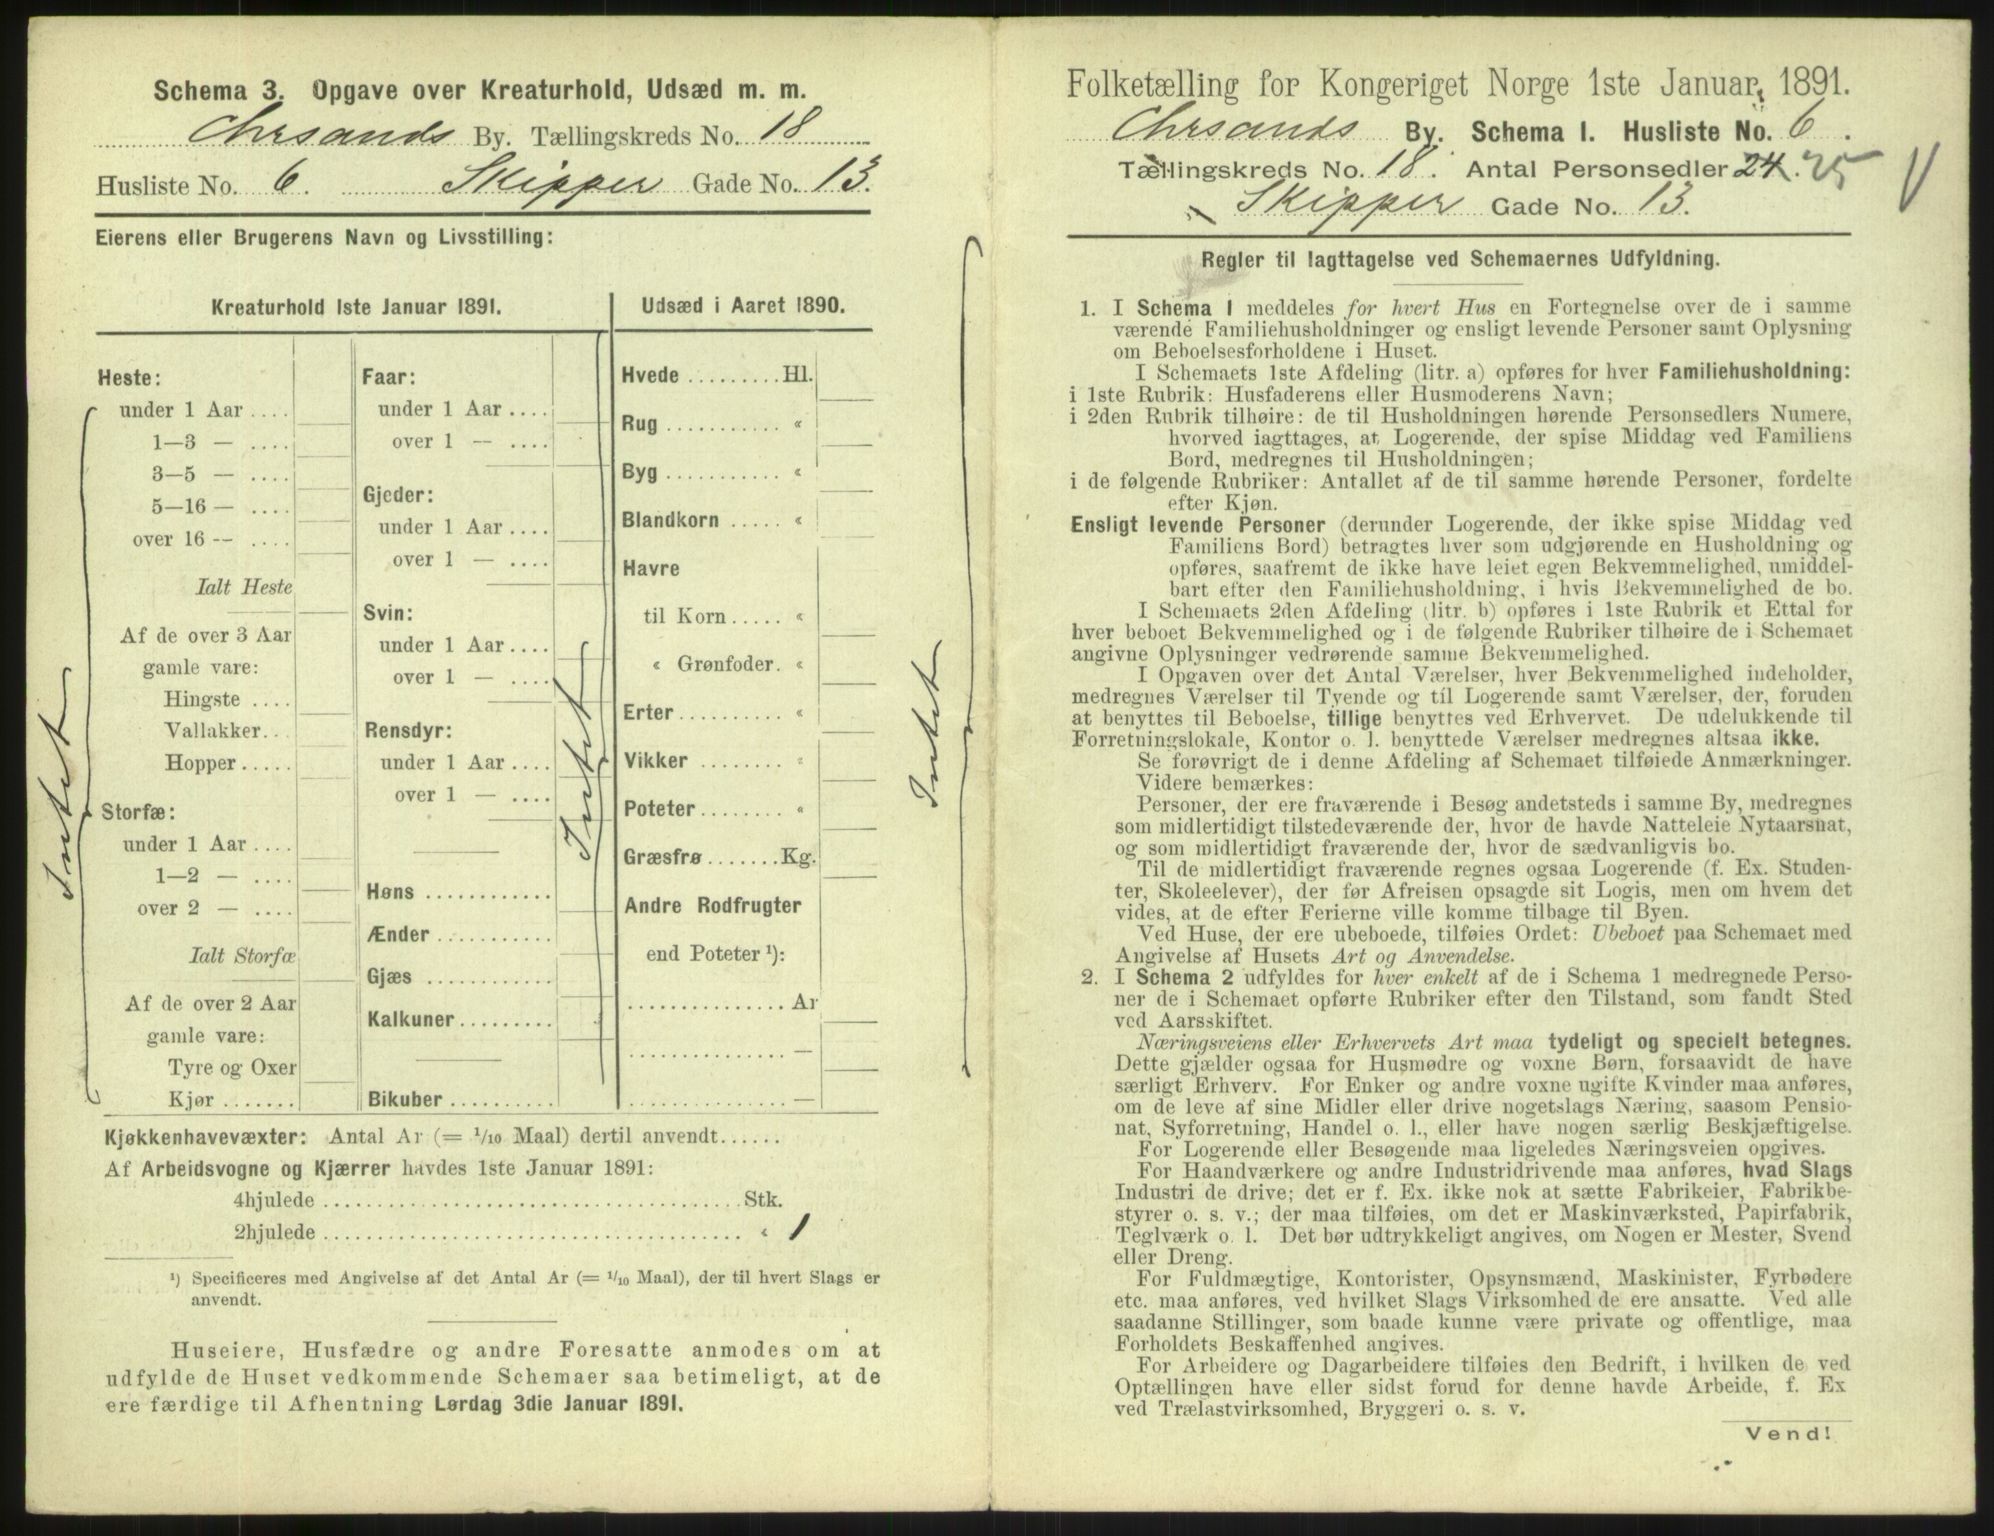 Schema 3. Opgave over Kreaturhold, Udsæd m. m.
Chrsands By. Tællingskreds No. 18
Husliste No. 6. Skipper Gade No. 13.
Eierens eller Brugerens Navn og Livsstilling:
Kreaturhold 1ste Januar 1891.
Heste:
under 1 Aar ....
1—3 — ....
3—5 — ....
5—16 — ....
over 16 -- ....
Ialt Heste
Af de over 3 Aar
gamle vare:
Hingste ....
Vallakker...
Hopper.....
Storfæ:
under 1 Aar ....
1—2 — ....
over 2 — ....
Ialt Storfæ
Af de over 2 Aar
gamle vare:
Tyre og Oxer
Kjør .......
Intet
Faar:
under 1 Aar ....
over 1 — ....
Gjeder:
under 1 Aar ....
over 1 — ....
Svin:
under 1 Aar ....
over 1 — ....
Rensdyr:
under 1 Aar ....
over 1 — ....
Høns ............
Ænder ...........
Gjæs ............
Kalkuner.........
Bikuber ..........
Intet
Udsæd i Aaret 1890.
Hvede .........Hl.
Rug ........... «
Byg ........... «
Blandkorn ..... «
Havre
til Korn..... «
« Grønfoder. «
Erter.......... «
Vikker ........ «
Poteter........ «
Græsfrø .......Kg.
Andre Rodfrugter
end Poteter ¹):
............... Ar
............... —
............... —
Intet
Kjøkkenhavevæxter: Antal Ar (= 1/10 Maal) dertil anvendt......
Af Arbeidsvogne og Kjærrer havdes 1ste Januar 1891:
4hjulede ........................................ Stk.
2hjulede ........................................ « 1
¹) Specificeres med Angivelse af det Antal Ar (= 1/10 Maal), der til hvert Slags er
anvendt.
Huseiere, Husfædre og andre Foresatte anmodes om at
udfylde de Huset vedkommende Schemaer saa betimeligt, at de
ere færdige til Afhentning Lørdag 3die Januar 1891.
Folketælling for Kongeriget Norge 1ste Januar 1891.
Chrsands By. Schema I. Husliste No. 6.
Tællingskreds No. 18. Antal Personsedler 24. 25 V
Skipper Gade No. 13.
Regler til Iagttagelse ved Schemaernes Udfyldning.
1. I Schema I meddeles for hvert Hus en Fortegnelse over de i samme
værende Familiehusholdninger og ensligt levende Personer samt Oplysning
om Beboelsesforholdene i Huset.
I Schemaets 1ste Afdeling (litr. a) opføres for hver Familiehusholdning:
i 1ste Rubrik: Husfaderens eller Husmoderens Navn;
i 2den Rubrik tilhøire: de til Husholdningen hørende Personsedlers Numere,
hvorved iagttages, at Logerende, der spise Middag ved Familiens
Bord, medregnes til Husholdningen;
i de følgende Rubriker: Antallet af de til samme hørende Personer, fordelte
efter Kjøn.
Ensligt levende Personer (derunder Logerende, der ikke spise Middag ved
Familiens Bord) betragtes hver som udgjørende en Husholdning og
opføres, saafremt de ikke have leiet egen Bekvemmelighed, umiddel-
bart efter den Familiehusholdning, i hvis Bekvemmelighed de bo.
I Schemaets 2den Afdeling (litr. b) opføres i 1ste Rubrik et Ettal for
hver beboet Bekvemmelighed og i de følgende Rubriker tilhøire de i Schemaet
angivne Oplysninger vedrørende samme Bekvemmelighed.
I Opgaven over det Antal Værelser, hver Bekvemmelighed indeholder,
medregnes Værelser til Tyende og til Logerende samt Værelser, der, foruden
at benyttes til Beboelse, tillige benyttes ved Erhvervet. De udelukkende til
Forretningslokale, Kontor o. l. benyttede Værelser medregnes altsaa ikke.
Se forøvrigt de i denne Afdeling af Schemaet tilføiede Anmærkninger.
Videre bemærkes:
Personer, der ere fraværende i Besøg andetsteds i samme By, medregnes
som midlertidigt tilstedeværende der, hvor de havde Natteleie Nytaarsnat,
og som midlertidigt fraværende der, hvor de sædvanligvis bo.
Til de midlertidigt fraværende regnes ogsaa Logerende (f. Ex. Studen-
ter, Skoleelever), der før Afreisen opsagde sit Logis, men om hvem det
vides, at de efter Ferierne ville komme tilbage til Byen.
Ved Huse, der ere ubeboede, tilføies Ordet: Ubeboet paa Schemaet med
Angivelse af Husets Art og Anvendelse.
2. I Schema 2 udfyldes for hver enkelt af de i Schema 1 medregnede Perso-
ner de i Schemaet opførte Rubriker efter den Tilstand, som fandt Sted
ved Aarsskiftet.
Næringsveiens eller Erhvervets Art maa tydeligt og specielt betegnes.
Dette gjælder ogsaa for Husmødre og voxne Børn, forsaavidt de have
særligt Erhverv. For Enker og andre voxne ugifte Kvinder maa anføres,
om de leve af sine Midler eller drive nogetslags Næring, saasom Pensio-
nat, Syforretning, Handel o. l., eller have nogen særlig Beskjæftigelse.
For Logerende eller Besøgende maa ligeledes Næringsveien opgives.
For Haandværkere og andre Industridrivende maa anføres, hvad Slags
Industri de drive; det er f. Ex. ikke nok at sætte Fabrikeier, Fabrikbe-
styrer o. s. v.; der maa tilføies, om det er Maskinværksted, Papirfabrik,
Teglværk o. l. Det bør udtrykkeligt angives, om Nogen er Mester, Svend
eller Dreng.
For Fuldmægtige, Kontorister, Opsynsmænd, Maskinister, Fyrbødere
etc. maa anføres, ved hvilket Slags Virksomhed de ere ansatte. Ved alle
saadanne Stillinger, som baade kunne være private og offentlige, maa
Forholdets Beskaffenhed angives.
For Arbeidere og Dagarbeidere tilføies den Bedrift, i hvilken de ved
Optællingen have eller sidst forud for denne havde Arbeide, f. Ex
ved Trælastvirksomhed, Bryggeri o. s. v.
Vend!